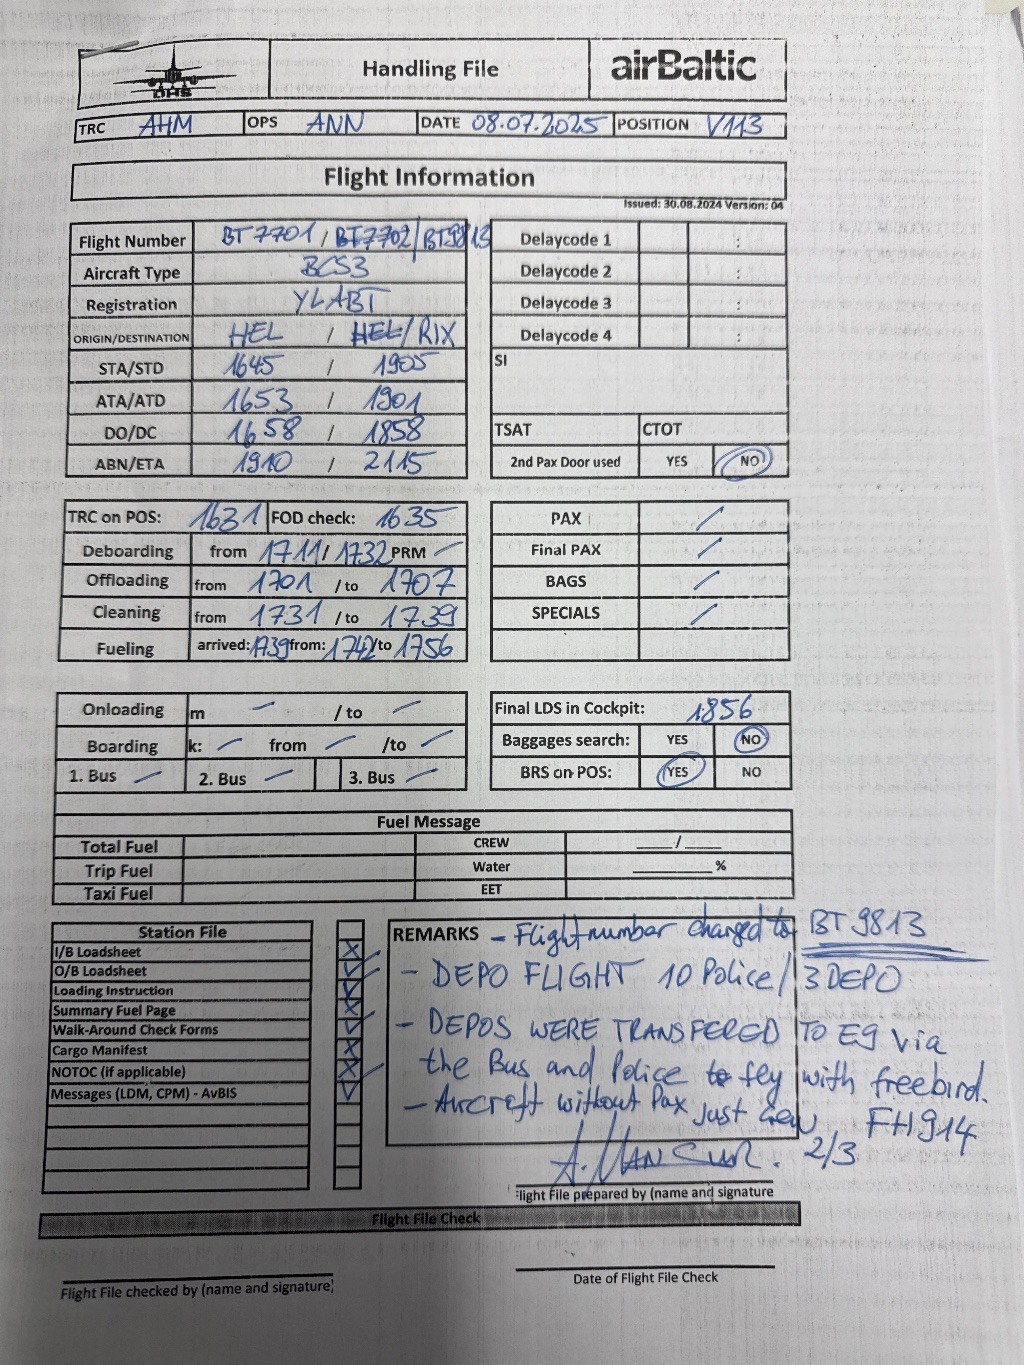 DHS Handling File airBaltic
TRC AHM OPS ANN DATE 08.07.2025 POSITION V113
Flight Information
Issued: 30.08.2024 Version: 04
Flight Number BT7701 / BT7702/BT9813
Aircraft Type BCS3
Registration YLABT
ORIGIN/DESTINATION HEL / HEL/RIX
STA/STD 1645 / 1905
ATA/ATD 1653 / 1901
DO/DC 1658 / 1858
ABN/ETA 1910 / 2115
Delaycode 1 :
Delaycode 2 :
Delaycode 3 :
Delaycode 4 :
SI
TSAT CTOT
2nd Pax Door used YES NO
TRC on POS: 1631 FOD check: 1635
Deboarding from 1711 / 1732 PRM –
Offloading from 1701 / to 1707
Cleaning from 1731 / to 1739
Fueling arrived: 1739 from: 1742 /to 1756
PAX /
Final PAX /
BAGS /
SPECIALS /
Onloading m – / to –
Boarding k: – from – /to –
1. Bus – 2. Bus – 3. Bus –
Final LDS in Cockpit: 1856
Baggages search: YES NO
BRS on POS: YES NO
Fuel Message
Total Fuel CREW ____/____
Trip Fuel Water ________%
Taxi Fuel EET
Station File
I/B Loadsheet
O/B Loadsheet
Loading Instruction
Summary Fuel Page
Walk-Around Check Forms
Cargo Manifest
NOTOC (if applicable)
Messages (LDM, CPM) - AvBIS
REMARKS – Flightnumber changed to BT9813
– DEPO FLIGHT 10 Police / 3 DEPO
– DEPOS WERE TRANSFERED TO E9 via
the Bus and Police to fly with freebird.
– Aircraft without Pax just crew FH914
A. MANSUR. 2/3
Flight File prepared by (name and signature
Flight File Check
Flight File checked by (name and signature)
Date of Flight File Check